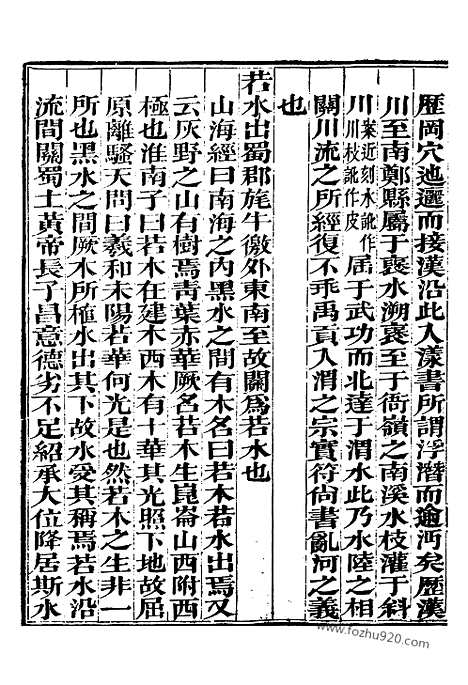 歷岡穴迆邐而接漢沿此入漾書所謂浮潛而逾沔矣歷漢
川至南鄭縣屬于襃水溯襃至于衙嶺之南溪水枝灌于斜
川案近刻水訛作川枝訛作皮屆于武功而北達于渭水此乃水陸之相
關川流之所經復不乖禹貢入渭之宗實符尚書亂河之義
也
若水出蜀郡旄牛徼外東南至故關爲若水也
山海經曰南海之內黑水之間有木名曰若木若水出焉又
云灰野之山有樹焉青葉赤華厥名若木生崑崙山西附西
極也淮南子曰若木在建木西木有十華其光照下地故屈
原離騷天問曰羲和未陽若華何光是也然若木之生非一
所也黑水之間厥木所植水出其下故水受其稱焉若水沿
流間關蜀土黃帝長子昌意德劣不足紹承大位降居斯水
www.fozhu920.com